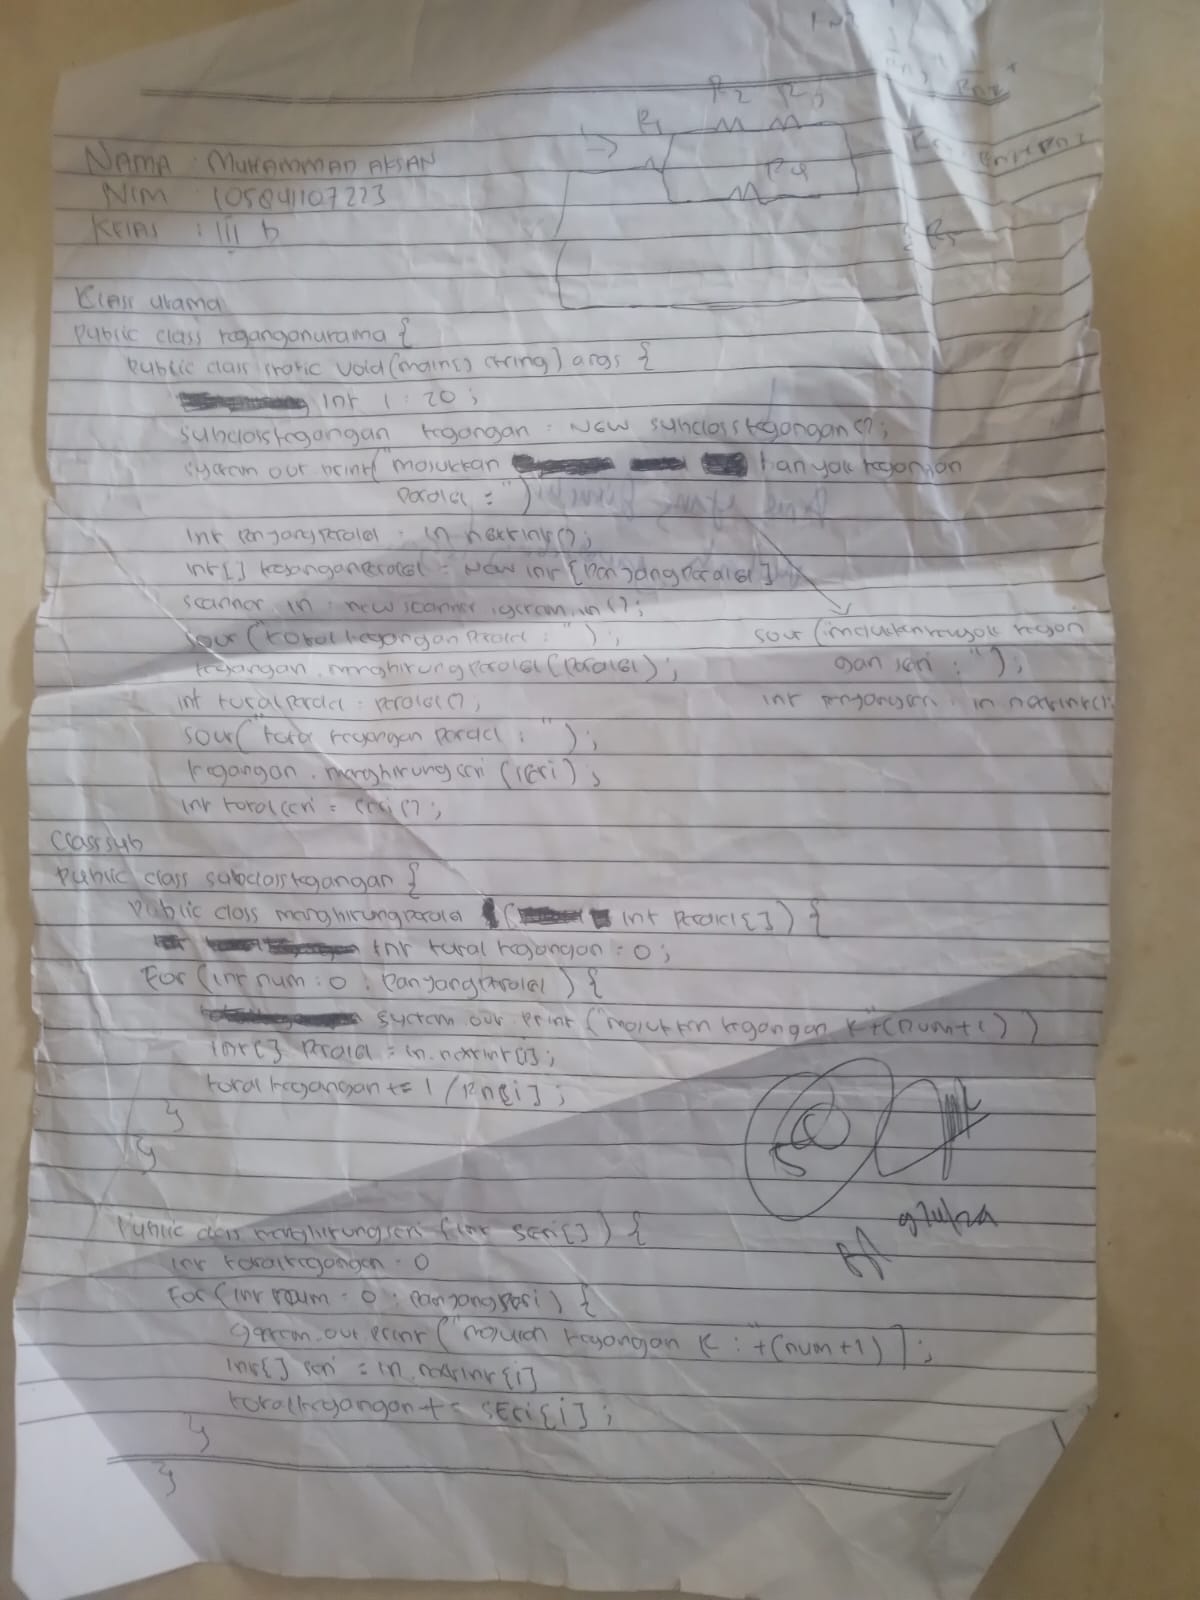 R2 R3
R1
R4
R5
NAMA : MUHAMMAD AKSAN
NIM : 105841107223
KELAS : III b
Class utama
public class teganganutama {
public class static void (mains) string) args {
int i : 20;
subclasstegangan tegangan : NEW subclasstegangan();
system out print("masukkan banyak tegangan
paralel = ")
int panjangparalel : in nextint();
int[] teganganparalel = New int [panjangparalel]
scanner in : new scanner system.in();
sout ("total tegangan paralel : ");
tegangan . menghitungparalel (paralel);
int totalparalel : paralel();
sout("total tegangan paralel : ");
tegangan . menghitungseri (seri);
int totalseri = seri();
sout (masukkan banyak tegan
gan seri : ");
int panjangseri : in nextint();
Class sub
public class subclasstegangan {
public class menghitungparalel ( int paralel[]) {
int total tegangan = 0;
For (int num : 0 ; panjangparalel ) {
system out print ("masukkan tegangan k"+(num+1))
int[] paralel = in.nextint[i];
total tegangan += 1 / Rn[i] ;
}
}
public class menghitungseri (int seri[]) {
int totaltegangan = 0
For (int num = 0 ; panjangseri) {
system.out.print ("masukkan tegangan k : "+(num+1) ];
int[] seri = in.nextint[i]
totaltegangan += seri[i] ;
}
}